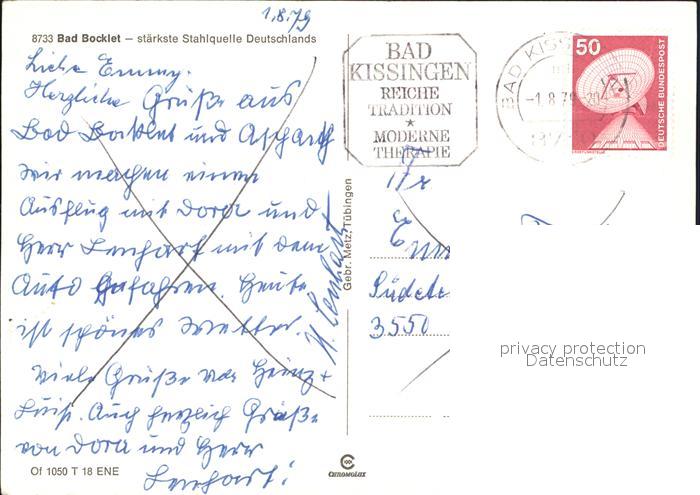 1.8.79
8733 Bad Bocklet – stärkste Stahlquelle Deutschlands
Liebe Emmy.
Herzliche Grüße aus
Bad Bocklet und Aschach
wir machen einen
Ausflug mit Dora und
Herr Lenhart mit dem
Auto gefahren. Heute
ist schönes Wetter.
Viele Grüße von Heinz +
Luise. Auch herzlich Grüße
von Dora und Herr
Lenhart!
H. Lenhart
Of 1050 T 18 ENE
Gebr. Metz, Tübingen
CHROMOLUX
BAD
KISSINGEN
REICHE
TRADITION
★
MODERNE
THERAPIE
BAD KISS
-1.8.79-20
50
DEUTSCHE BUNDESPOST
Südete
3550
privacy protection
Datenschutz